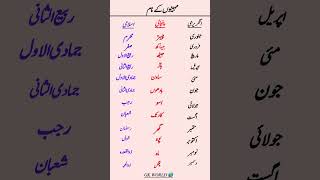 مہینوں کے نام
انگریزی پنجابی اسلامی
جنوری چیتر محرم
فروری بیساکھ صفر
مارچ جیٹھ ربیع الاول
اپریل ہاڑ ربیع الثانی
مئی ساون جمادی الاول
جون بھادوں جمادی الثانی
جولائی اسو رجب
اگست کاتک شعبان
ستمبر مگھر رمضان
اکتوبر پوہ شوال
نومبر ماہ
دسمبر
GK WORLD
اپریل
مئی
جون
جولائی
اگست
ربیع الثانی
جمادی الاول
جمادی الثانی
رجب
شعبان